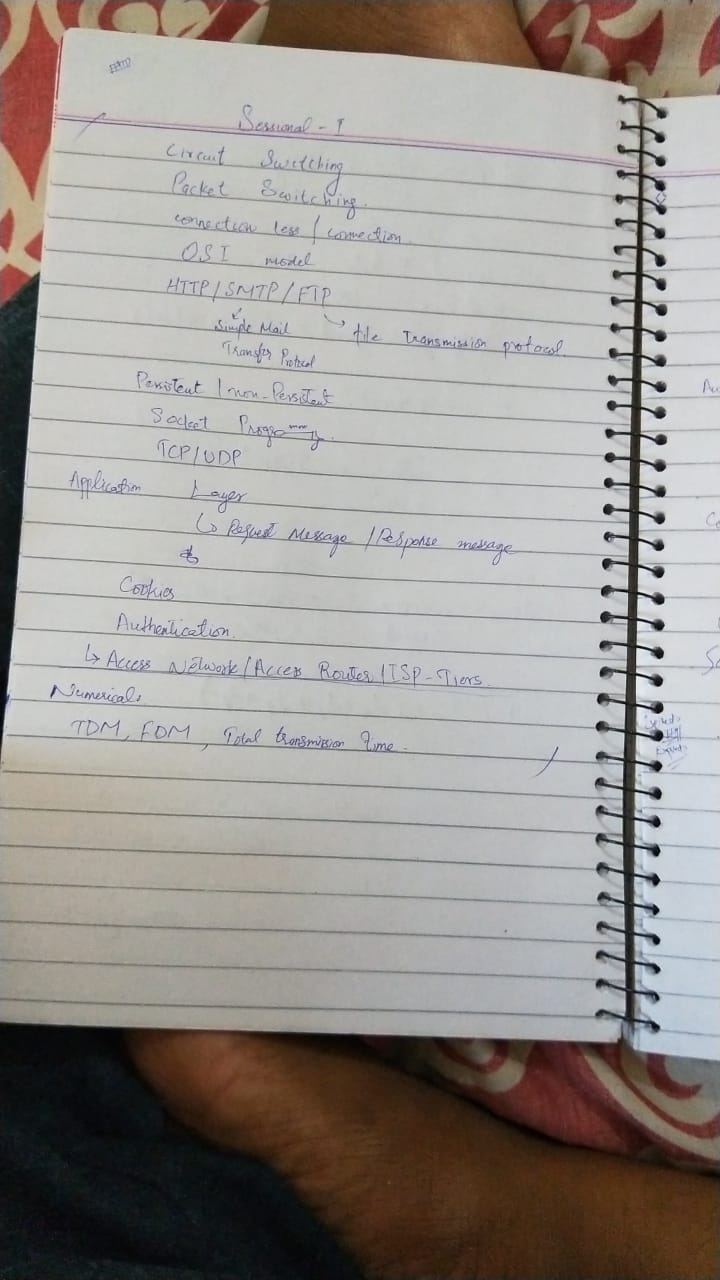 Sessional - I
Circuit Switching
Packet Switching.
connection less / connection
OSI model
HTTP / SMTP / FTP
Simple Mail
Transfer Protocol
file Transmission protocol.
Persistent / non-Persistent
Socket
TCP/UDP
Application Layer
Request Message / Response message
Cookies
Authentication.
Access Network / Access Router / ISP-Tiers
Numericals
TDM, FDM, Total transmission time.